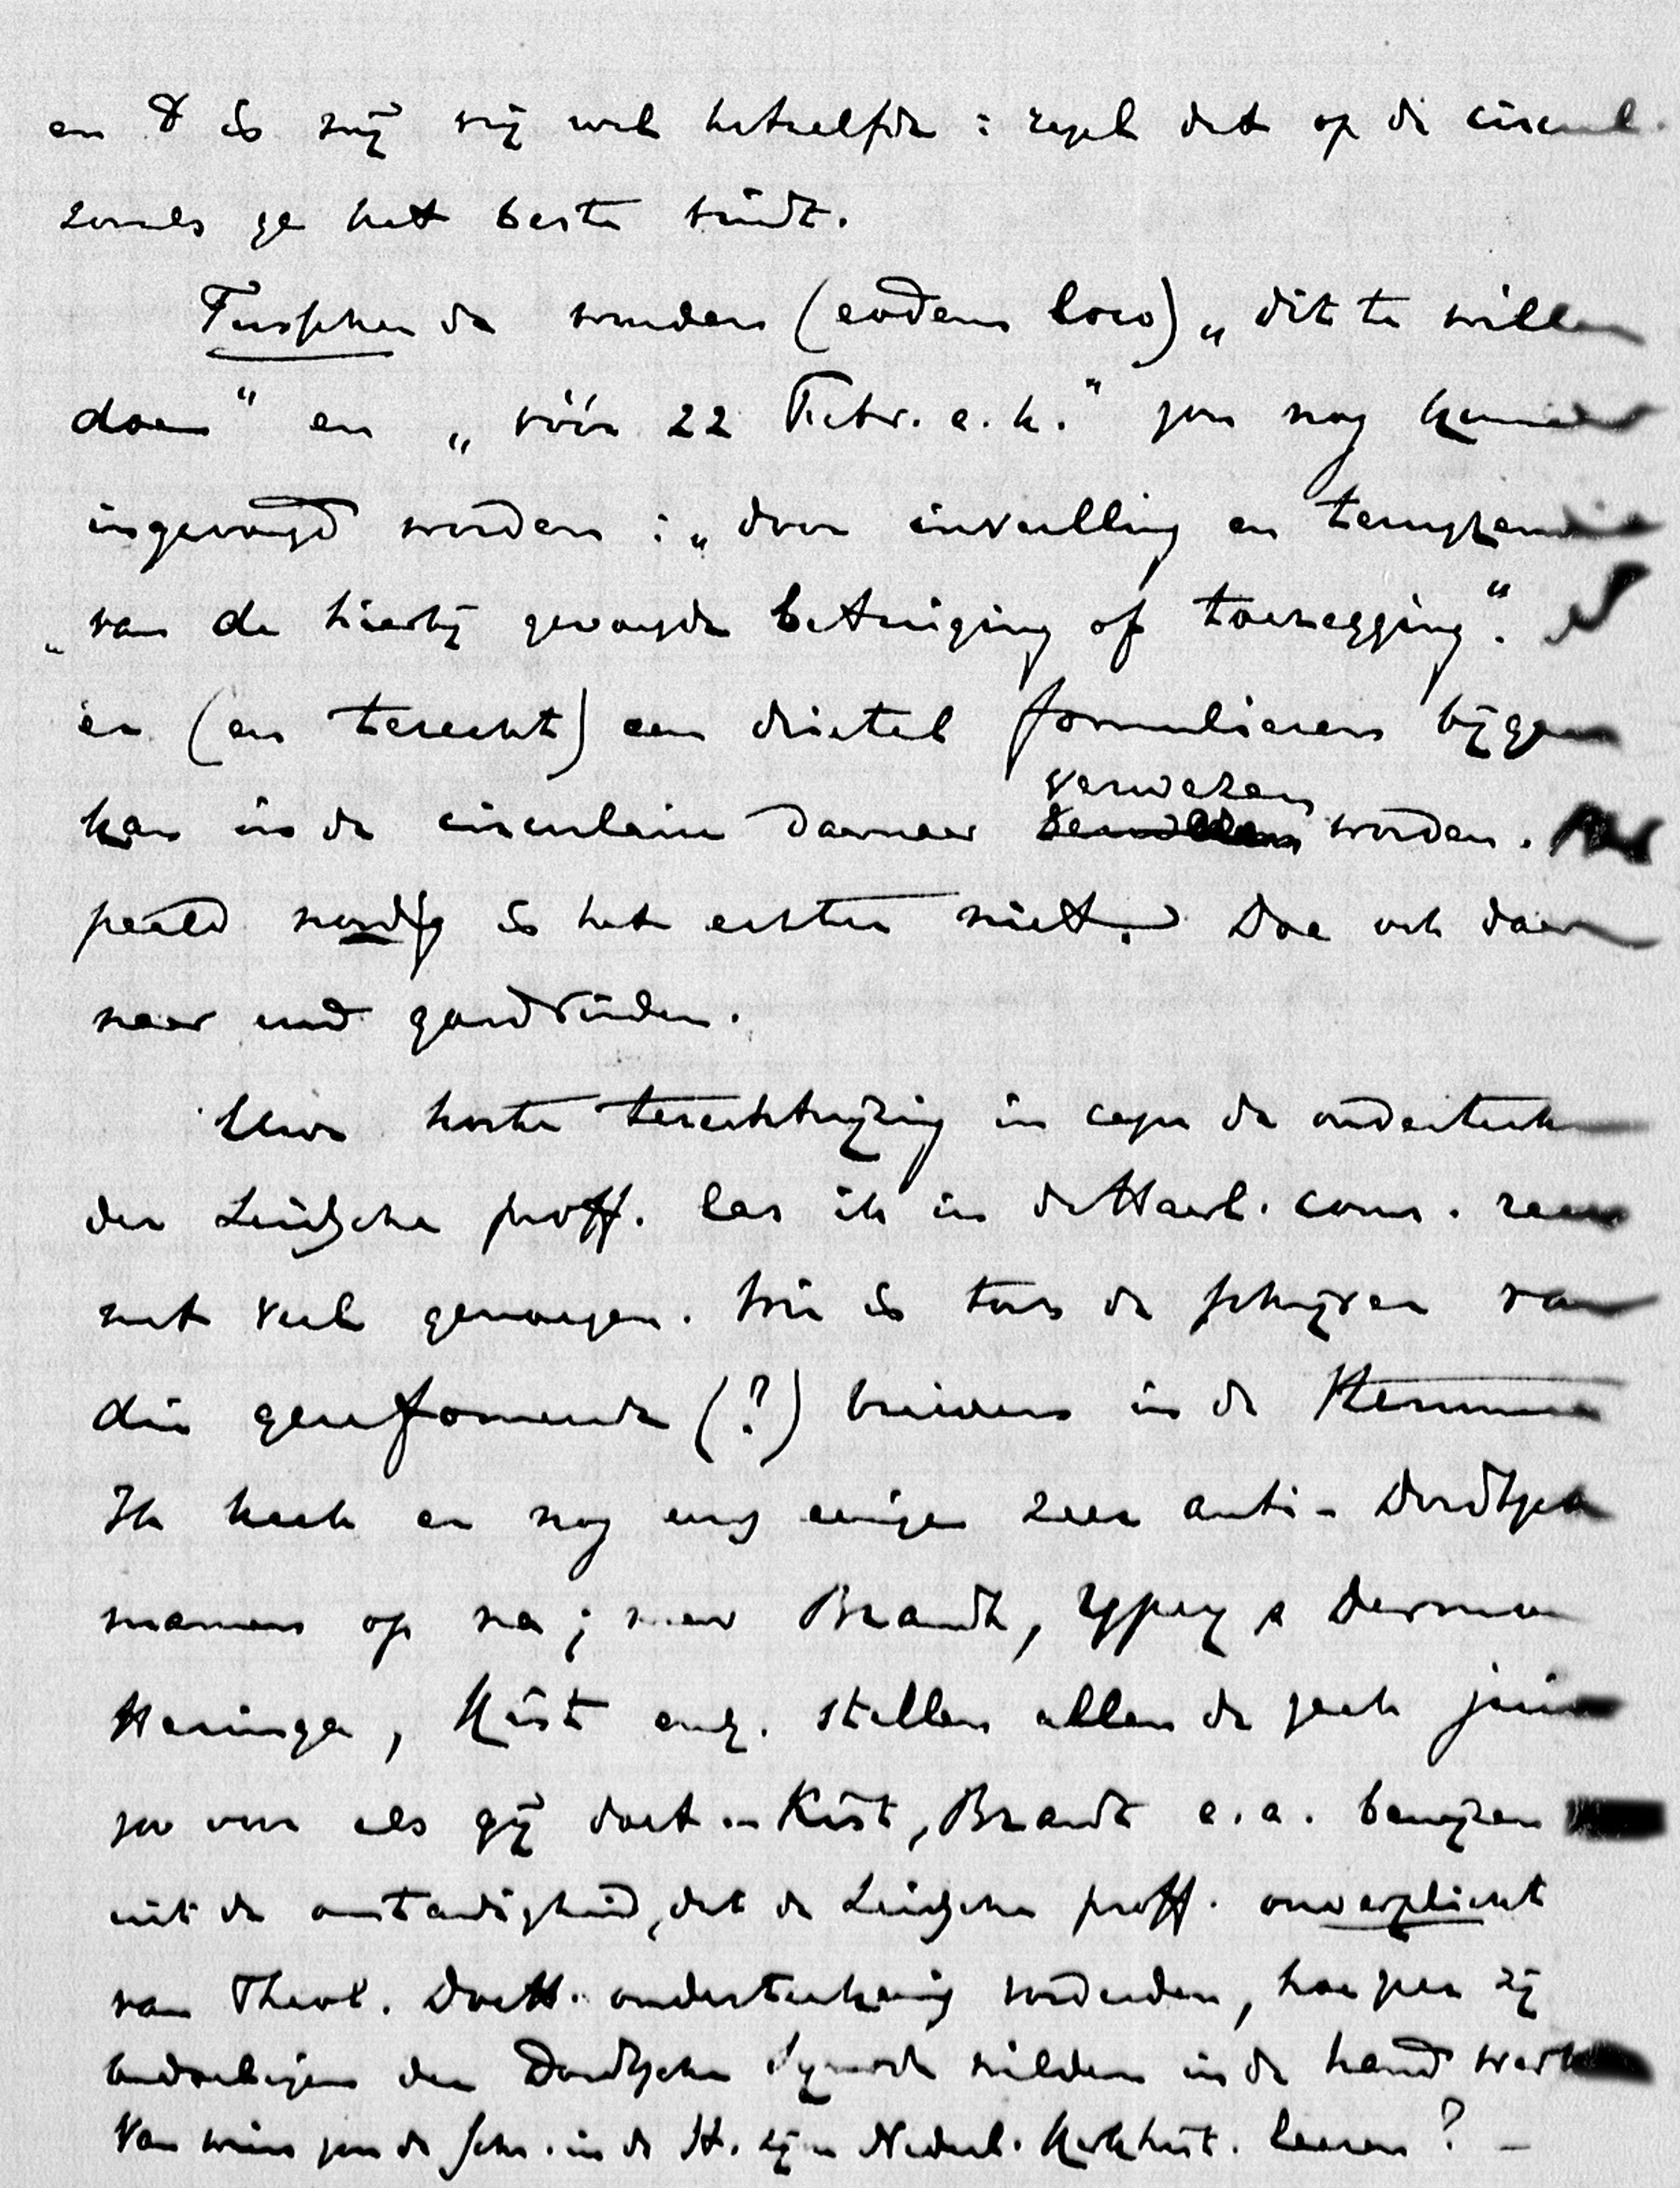 en D is mij vrij wel hetzelfde: regel dat op de circul.
zooals ge het beste vindt.
Tusschen de woorden (eodem loco) „dit te willen
doen" en „vóór 22 Febr. a.k." zou nog kunnen
ingevoegd worden: „door invulling en terugzending
„van de hierbij gevoegde betuiging of toezegging".
er (en terecht) een drietal formulieren bijgaan
kan in de circulaire daarnaar verwezen worden.
paald noodig is het echter niet. Doe ook daar
naar uw goedvinden.
Uwe korte terechtwijzing in capu de onderteek
der Leidsche proff. las ik in de Haarl. cour.
met veel genoegen. Wie is toch de schrijver van
die gereformeerde (?) brieven in de
Ik keek er nog eens eenige zeer anti-Dordtsche
mannen op na; maar Brandt, Ypey & Dermou
Heringa, Kist enz. stellen allen de zaak juist
zoo voor als gij doet. Kist, Brandt e.a. bewijzen
uit de omstandigheid, dat de Leidsche proff. onverplicht
van Theol. Doctt. onderteekening vorderden, hoezeer zij
bedoelingen der Dordtsche Synode wilden in de hand werken
Van wien zou de schr. in de H. zijn Nederl. Kerkhist. leeren? –